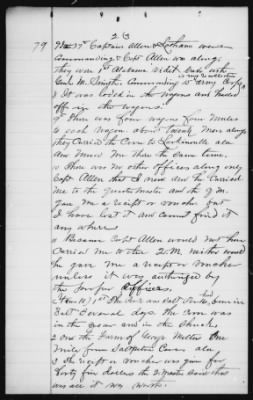 2 3
79 7 Captain Allen & Latham were
Commanding Capt Allen was along
they were 1st Alabama
Smith Commanding Army Corps
8 It was loded in the wagons and hauled
off in the wagons.
9 there was four wagons four mules
to each wagon about twenty men along
they Carried the Corn to Larkinsville ala
and Mused me there the same time,
0 there was no other offices along only
Capt Allen that I now and he Carried
me to the Quartermaster and the Q M.
gave me a recipt or voucher but
I have lost it and cannot find it
any where
11 Because Capt Allen would not
Carried me to the Q.M. masters would
he gave me a receipt or voucher
unless it was autherized by
the proper Officers.
(Item 10) 1st The Corn was
Salt Several days The corn was
in the year and in the Shuck
2 on the Farm of George
mile from Saltpeter Cave ala
3 The recipt or voucher was given for
forty five dollars the Q Master said that
was all it was worth.